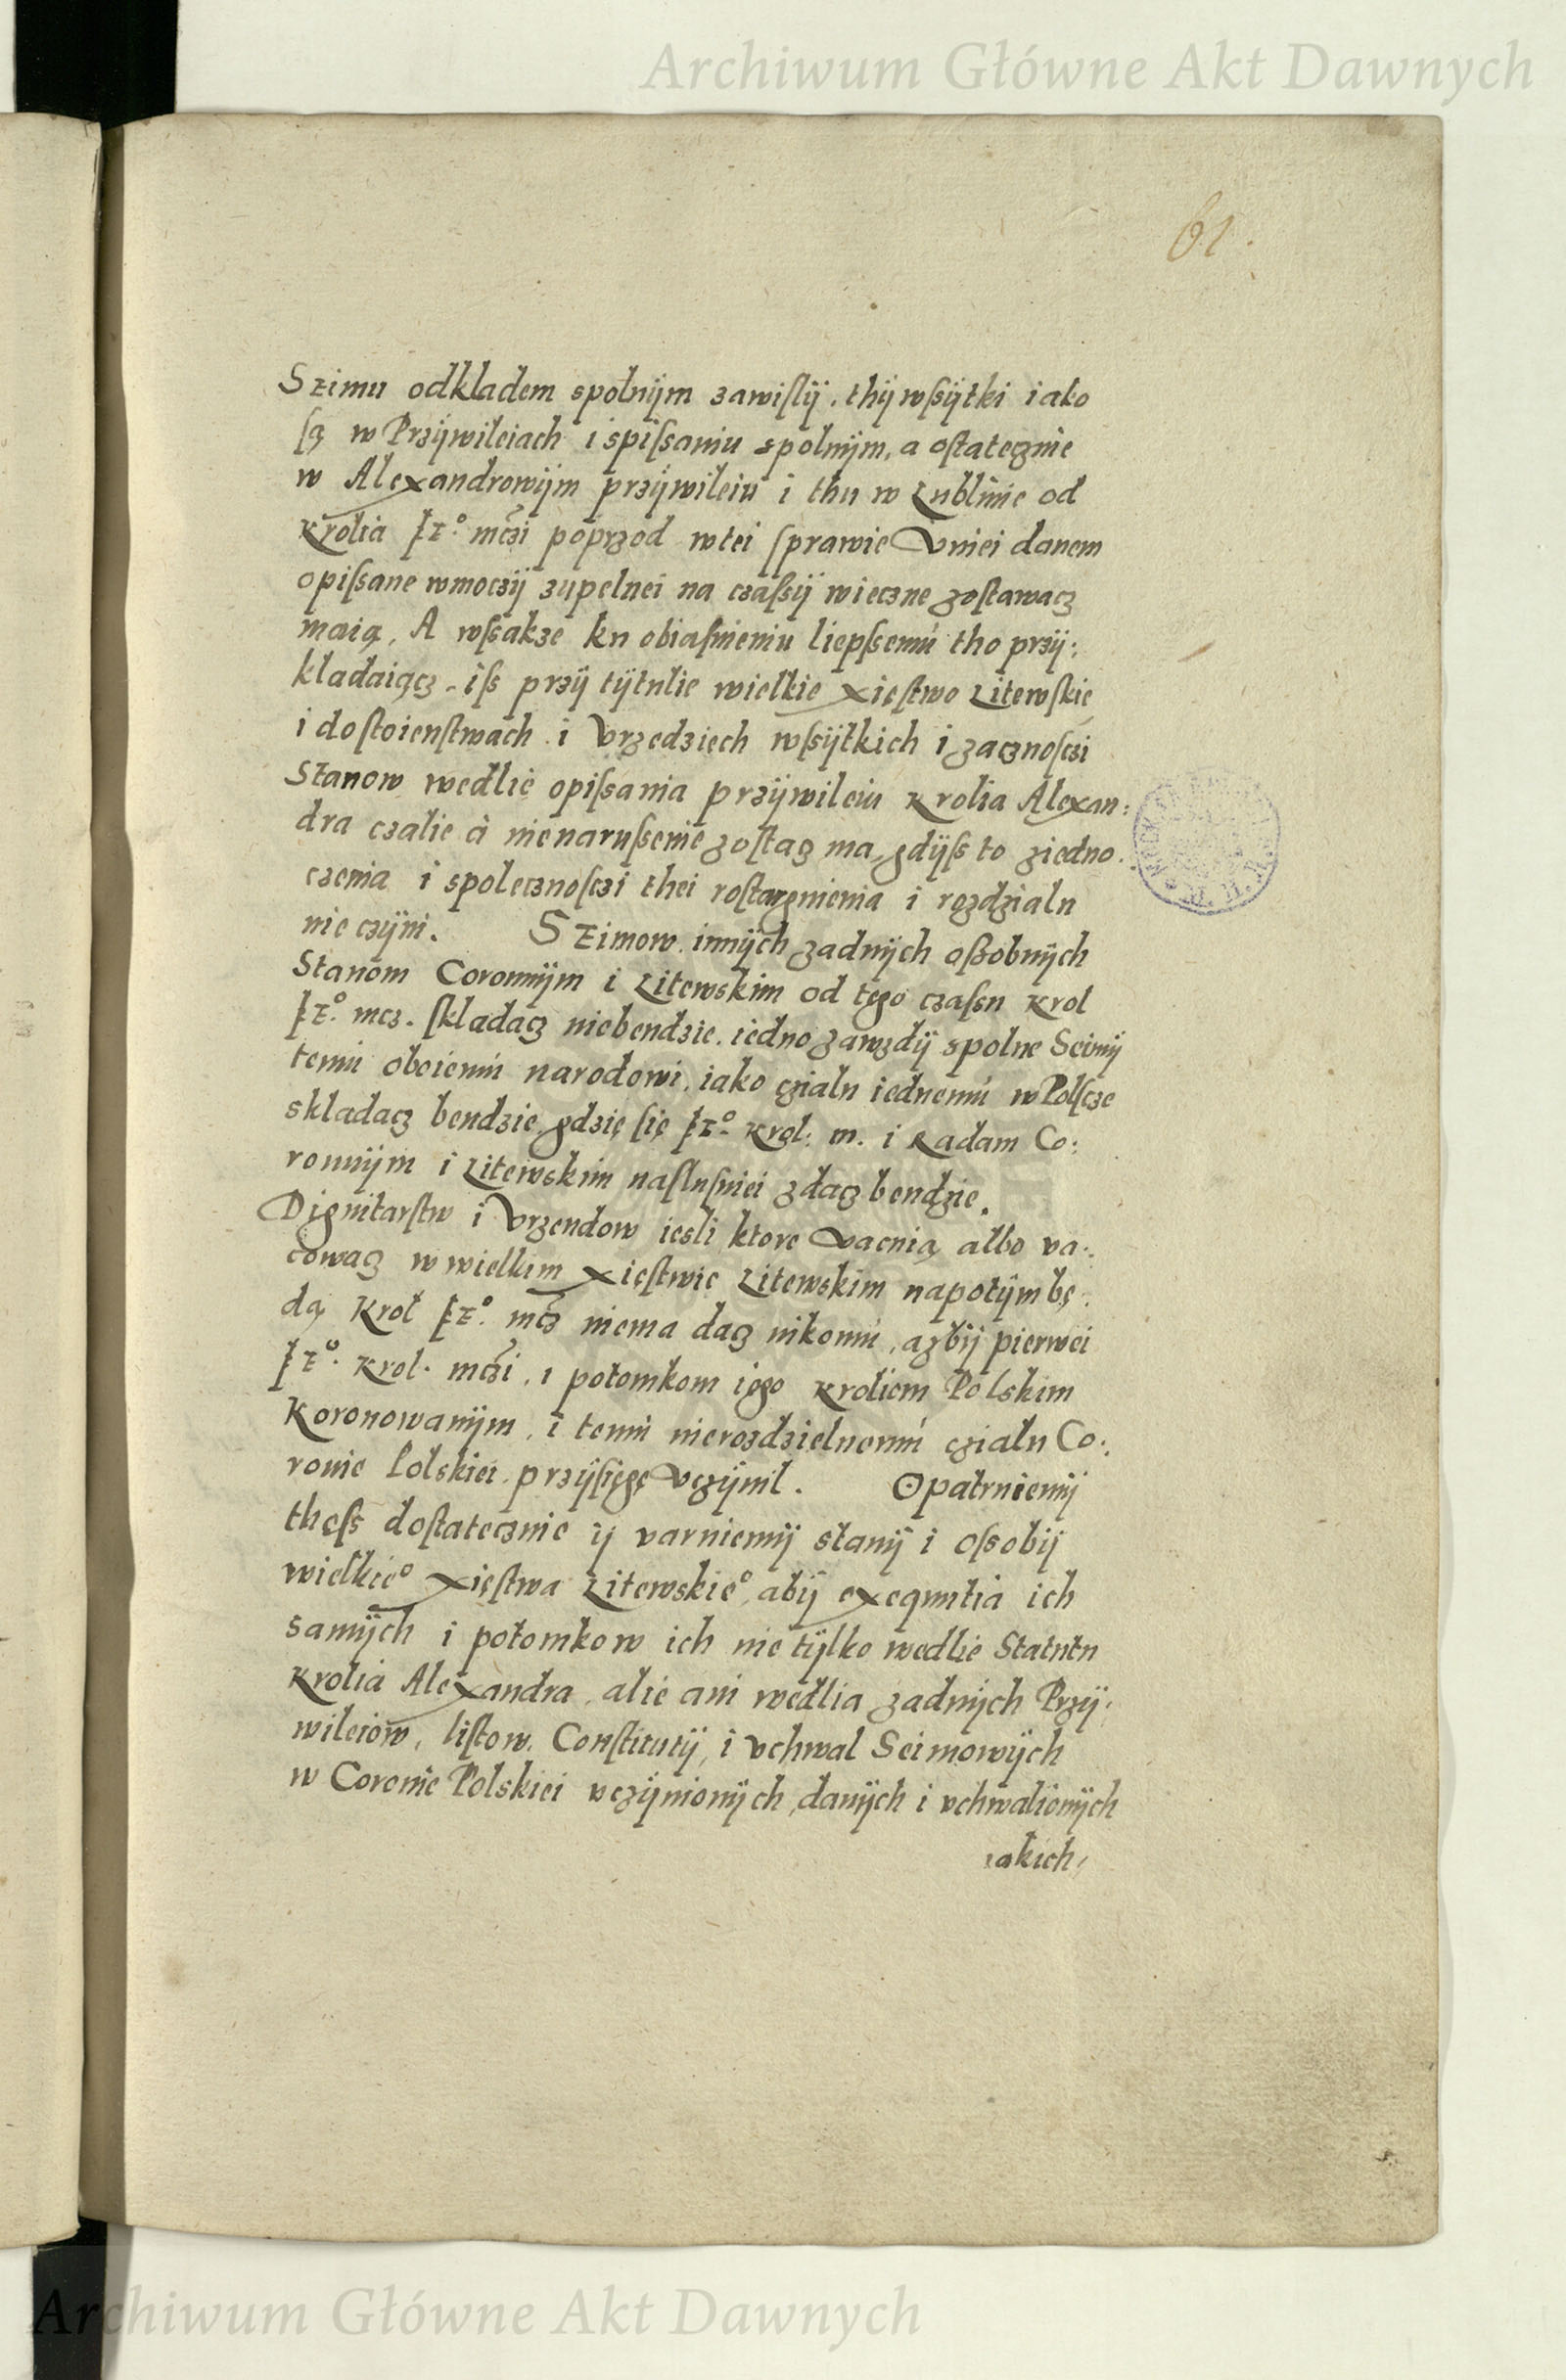 Archiwum Główne Akt Dawnych
61.
Szimu odkladem spolnÿm zawislÿ, thÿ wſsÿtki iako
są w Przÿwileiach i spiſsaniu spolnÿm, a oſtatecznie
w Alexandrowÿm przÿwileiu i thu w Lublinie od
Krolia Je° mczi poprzod w tei ſprawie Uniei danem
opiſsane w moczÿ zupelnei na czaſsÿ wieczne zoſtawacz
maią, A wſsakze ku obiaſnieniu liepſsemu tho przÿ:
kladaiącz, iſs przÿ tÿtulie wielkie Xięſtwo Litewſkie
i doſtoienſtwach i Urzedziech wſsÿtkich i zacznoſczi
Stanow wedlie opiſsania przÿwileiu Krolia Alexan:
dra czalie à nienaruſsenie zoſtacz ma, gdÿſs to ziedno:
czenia i spolecznoſczi thei roſtargnienia i rozdzialu
nie czÿni. Szimow innÿch zadnÿch oſsobnÿch
Stanom Coronnÿm i Litewskim od tego czaſsu Krol
Je° mcz. ſkladacz niebendzie, iedno zawzdÿ spolne Seimÿ
temu oboiemu narodowi, iako czialu iednemu w Polſcze
skladacz bendzie, gdzie ſię Je° Krol: m. i Radam Co:
ronnÿm i Litewskim naſluſniei zdacz bendzie.
Dignitarſtw i Urzendow iesli ktore Vacuią albo va:
cowacz w wielkim Xięſtwie Litewskim napotÿm bę:
dą Krol Je° mcz niema dacz nikomu, azbÿ pierwei
Je° Krol. mczi, i potomkom iego Kroliem Polskim
Koronowanÿm, i temu nierozdzielnemu czialu Co:
ronie Polskiei przÿſięgę Uczÿnil. Opatruiemÿ
theſs doſtatecznie ÿ varuiemÿ stanÿ i oſsobÿ
wielkie° Xięſtwa Litewskie°, abÿ exequutia ich
samÿch i potomkow ich nie tÿlko wedlie Statutu
Krolia Alexandra, alie ani wedlia zadnÿch Przÿ:
wileiow, liſtow, Conſtitutÿ, i vchwal Seimowÿch
w Coronie Polskiei vczÿnionÿch, danÿch i vchwalionÿch
iakich,
Archiwum Główne Akt Dawnych